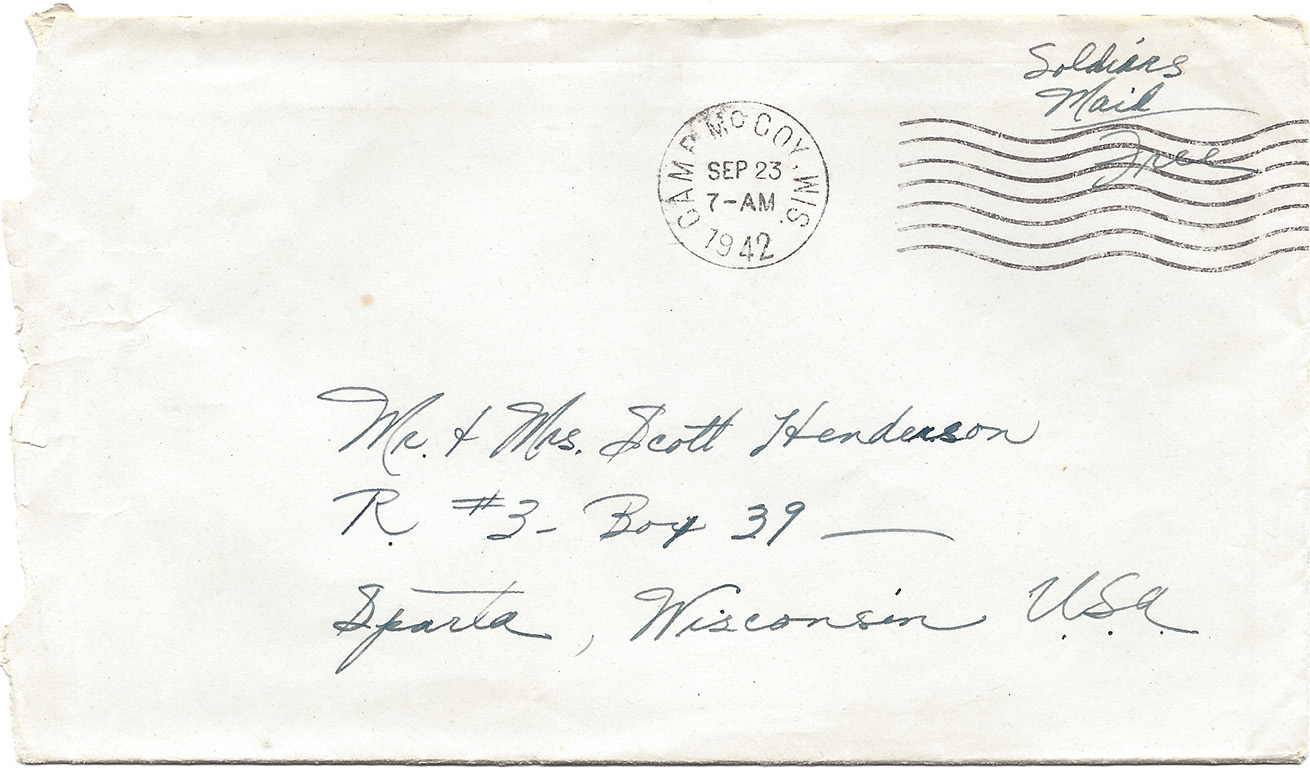 Soldiers
Mail
Free
CAMP McCOY. WIS.
SEP 23
7-AM
1942
Mr. & Mrs. Scott Henderson
R. #3- Box 39 —
Sparta, Wisconsin U.S.A.